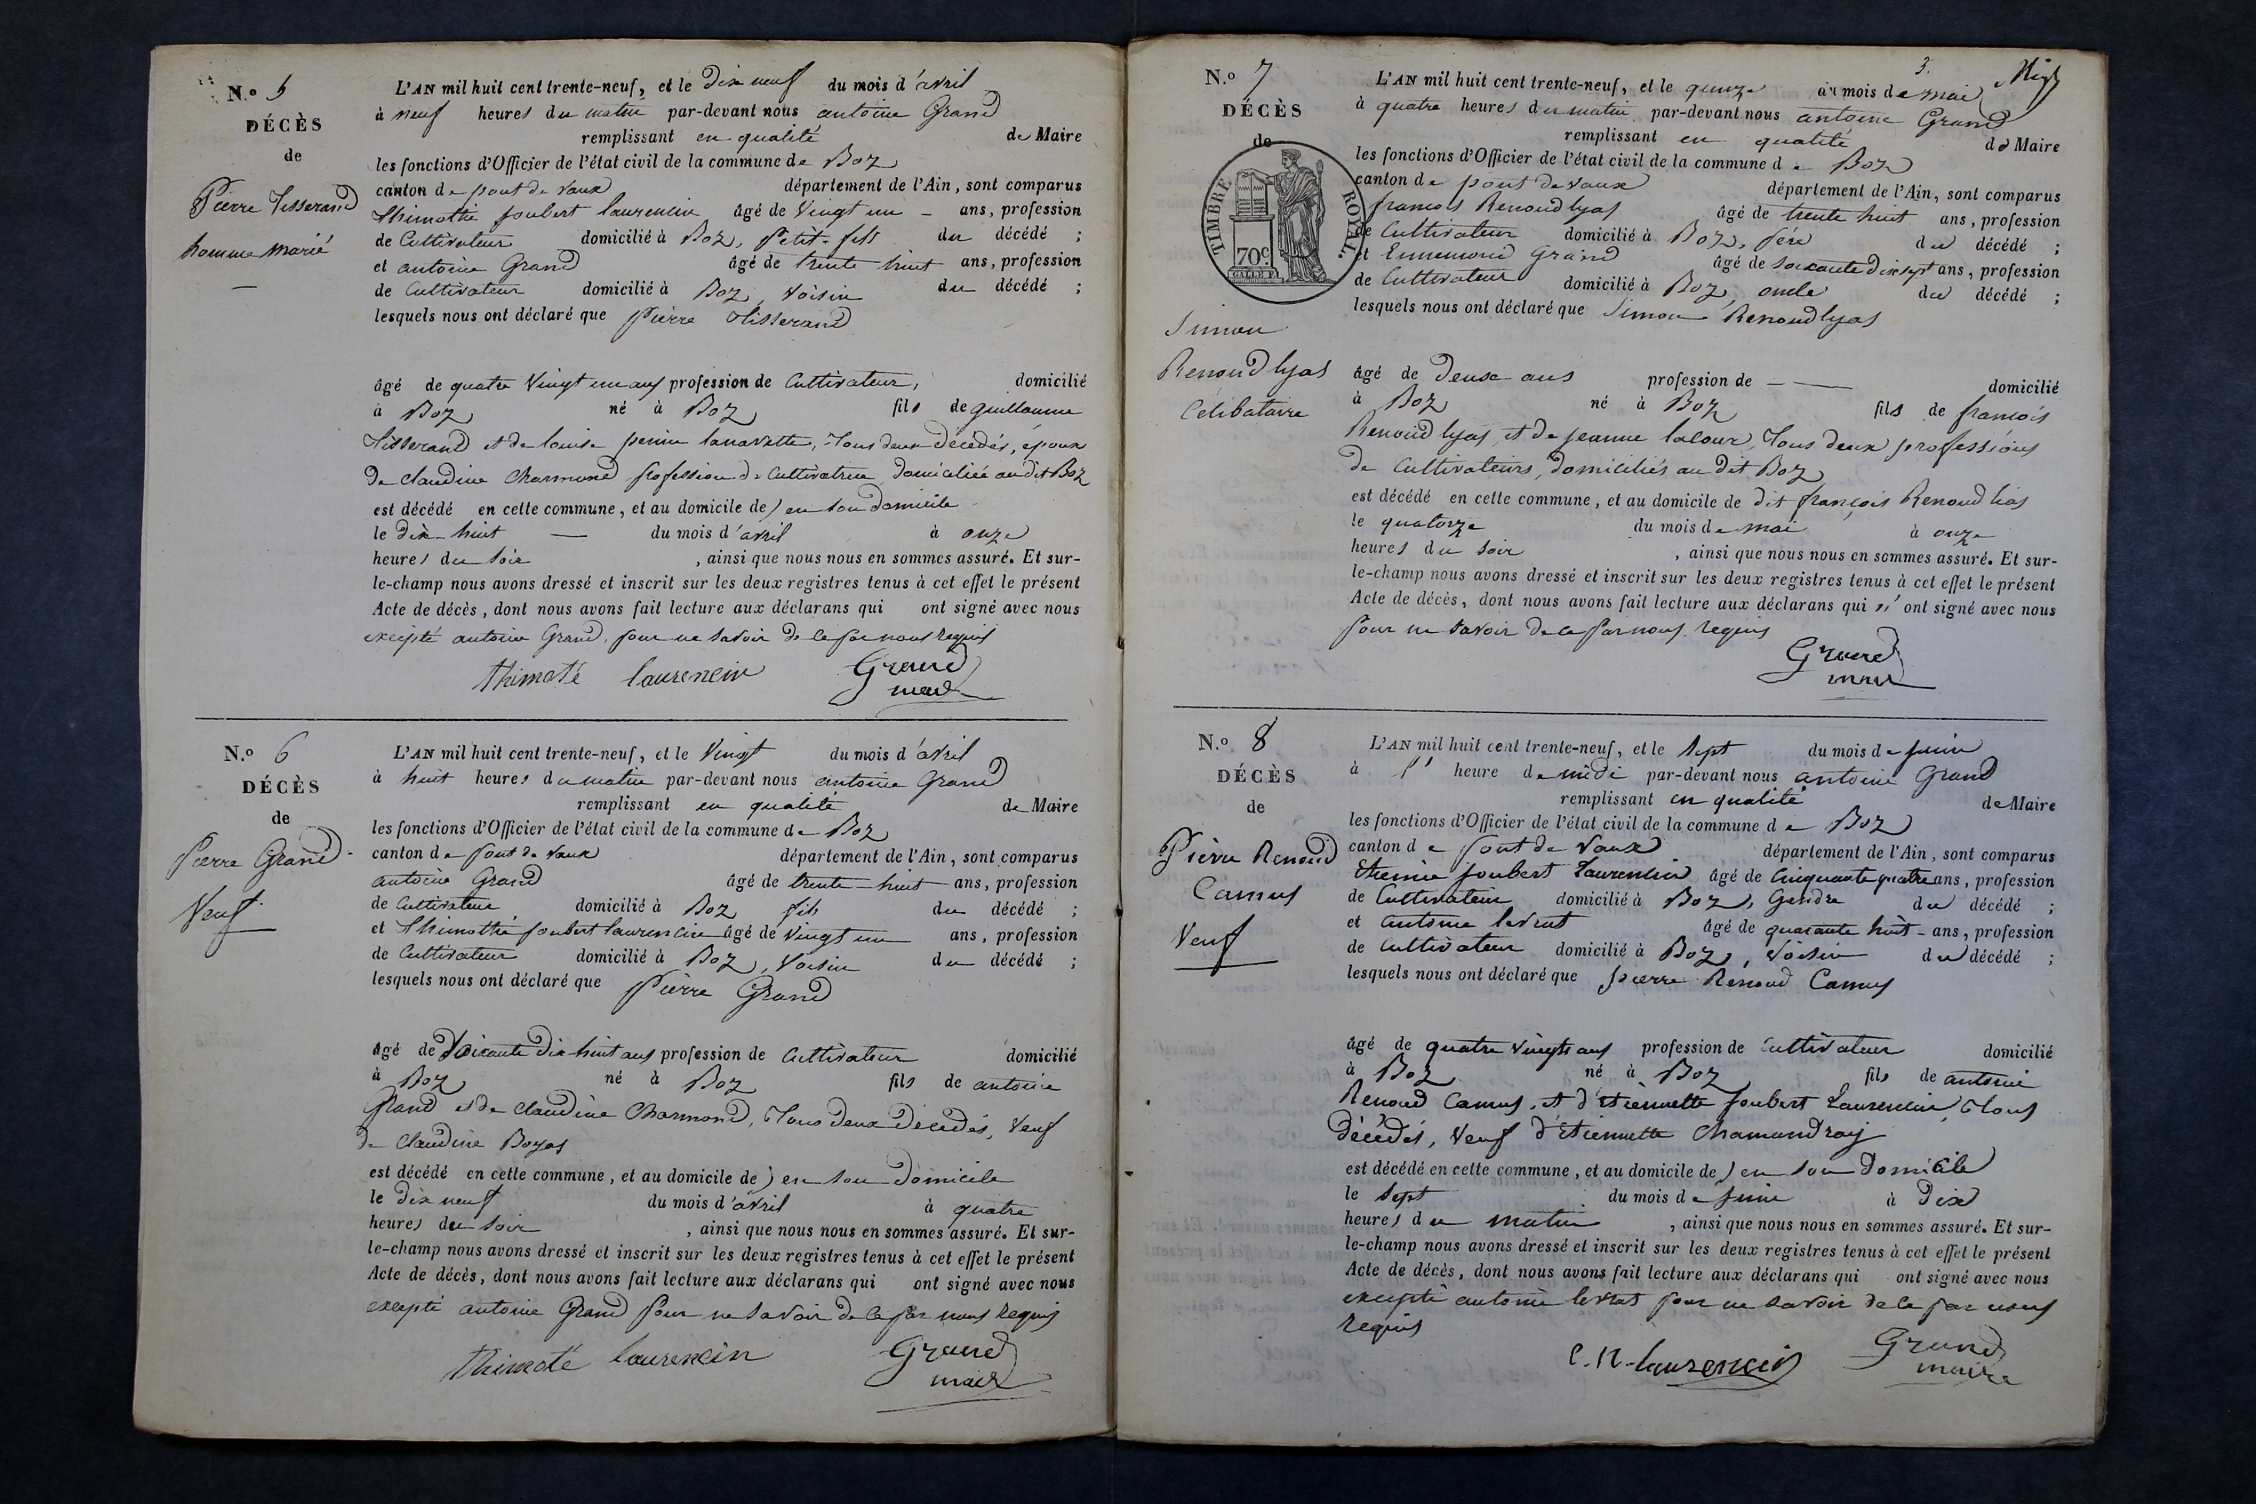 N.o 5
DÉCÈS
de
Pierre Tisserand
homme marié
L'AN mil huit cent trente-neuf, et le dix neuf du mois d'avril
à neuf heures du matin par-devant nous antoine Grand
remplissant en qualité de Maire
les fonctions d'Officier de l'état civil de la commune de Boz
canton de pont de vaux département de l'Ain, sont comparus
thimothé joubert laurencin âgé de vingt un - ans, profession
de Cultivateur domicilié à Boz, Petit-fils du décédé ;
et antoine Grand âgé de trente huit ans, profession
de Cultivateur domicilié à Boz, voisin du décédé ;
lesquels nous ont déclaré que pierre tisserand
âgé de quatre vingt un ans profession de Cultivateur, domicilié
à Boz né à Boz fils de guillaume
tisserand et de louise lanavette, tous deux décédés, époux
de claudine charmond profession de Cultivatrice domiciliée au dit Boz
est décédé en cette commune, et au domicile de) en son domicile
le dix-huit — du mois d'avril à onze
heures du soir , ainsi que nous nous en sommes assuré. Et sur-
le-champ nous avons dressé et inscrit sur les deux registres tenus à cet effet le présent
Acte de décès, dont nous avons fait lecture aux déclarans qui ont signé avec nous
excepté antoine Grand, pour ne savoir de ce par nous requis
thimoté laurencin Grand
maire
N.o 6
DÉCÈS
de
Pierre Grand
Veuf
L'AN mil huit cent trente-neuf, et le vingt du mois d'avril
à huit heures du matin par-devant nous antoine Grand
remplissant en qualité de Maire
les fonctions d'Officier de l'état civil de la commune de Boz
canton de pont de vaux département de l'Ain, sont comparus
antoine Grand âgé de trente-huit ans, profession
de Cultivateur domicilié à Boz fils du décédé ;
et thimothé joubert laurencin âgé de vingt un ans, profession
de Cultivateur domicilié à Boz, voisin du décédé ;
lesquels nous ont déclaré que pierre Grand
âgé de soixante dix huit ans profession de Cultivateur domicilié
à Boz né à Boz fils de antoine
Grand et de claudine charmond, tous deux décédés, veuf
de claudine Boyas
est décédé en cette commune, et au domicile de) en son domicile
le dix neuf du mois d'avril à quatre
heures du soir , ainsi que nous nous en sommes assuré. Et sur-
le-champ nous avons dressé et inscrit sur les deux registres tenus à cet effet le présent
Acte de décès, dont nous avons fait lecture aux déclarans qui ont signé avec nous
excepté antoine Grand pour ne savoir de ce par nous requis
thimoté laurencin Grand
maire
3.
N.o 7
DÉCÈS
de
TIMBRE ROYAL.
70c.
Simon
Renoud lyas
Célibataire
L'AN mil huit cent trente-neuf, et le quinze du mois de mai
à quatre heures du matin par-devant nous antoine Grand
remplissant en qualité de Maire
les fonctions d'Officier de l'état civil de la commune de Boz
canton de pont de vaux département de l'Ain, sont comparus
francois Renoud lyas âgé de trente huit ans, profession
de Cultivateur domicilié à Boz, père du décédé ;
et Ennemond Grand âgé de soixante dix sept ans, profession
de Cultivateur domicilié à Boz, oncle du décédé ;
lesquels nous ont déclaré que Simon Renoud lyas
âgé de deuse ans profession de — — domicilié
à Boz né à Boz fils de francois
Renoud lyas, et de jeanne lacour, tous deux professions
de Cultivateurs, domiciliés au dit Boz
est décédé en cette commune, et au domicile de dit françois Renoud lias
le quatorze du mois de mai à onze
heures du soir , ainsi que nous nous en sommes assuré. Et sur-
le-champ nous avons dressé et inscrit sur les deux registres tenus à cet effet le présent
Acte de décès, dont nous avons fait lecture aux déclarans qui n'ont signé avec nous
pour ne savoir de ce par nous requis
Grand
maire
N.o 8
DÉCÈS
de
Pierre Renoud
Camus
Veuf
L'AN mil huit cent trente-neuf, et le sept du mois de juin
à l' heure de midi par-devant nous antoine Grand
remplissant en qualité de Maire
les fonctions d'Officier de l'état civil de la commune de Boz
canton de pont de vaux département de l'Ain, sont comparus
Etienne joubert Laurencin âgé de cinquante quatre ans, profession
de Cultivateur domicilié à Boz, Gendre du décédé ;
et antoine levrat âgé de quarante huit - ans, profession
de Cultivateur domicilié à Boz, voisin du décédé ;
lesquels nous ont déclaré que pierre Renoud Camus
âgé de quatre vingts ans profession de Cultivateur domicilié
à Boz né à Boz fils de antoine
Renoud Camus, et d'etiennette joubert Laurencin, tous
décédés, veuf d'etiennette chamandray
est décédé en cette commune, et au domicile de) en son domicile
le sept du mois de juin à dix
heures du matin , ainsi que nous nous en sommes assuré. Et sur-
le-champ nous avons dressé et inscrit sur les deux registres tenus à cet effet le présent
Acte de décès, dont nous avons fait lecture aux déclarans qui ont signé avec nous
excepté antoine levrat pour ne savoir de ce par nous
requis
e. n. laurencin Grand
maire